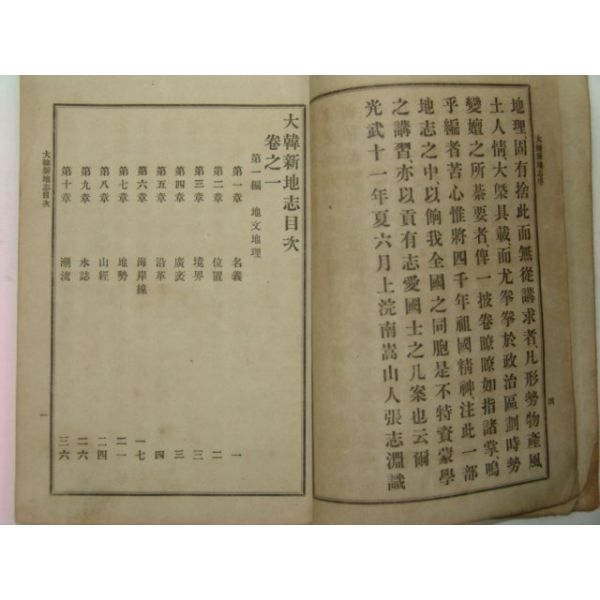 大韓新地志序
地理、固有捨此而無從講求者、凡形勢物產風
土人情、大槩具載、而尤拳拳於政治區劃時勢
變嬗之所綦要者、俾一披卷瞭瞭如指諸掌、嗚
乎編者苦心惟將四千年祖國精神、注此一部
地志之中、以餉我全國之同胞、是不特資蒙學
之講習、亦以貢有志愛國士之几案也云爾
光武十一年夏六月上浣南嵩山人張志淵識
四
大韓新地志目次
卷之一
第一編 地文地理
第一章 名義 一
第二章 位置 二
第三章 境界 三
第四章 廣袤 三
第五章 沿革 四
第六章 海岸線 一七
第七章 地勢 二一
第八章 山經 二四
第九章 水誌 二六
第十章 潮流 三六
大韓新地志目次
一